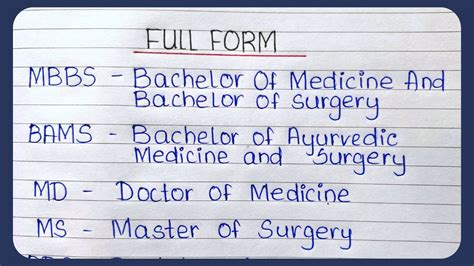 FULL FORM
MBBS - Bachelor Of Medicine And
Bachelor of Surgery
BAMS - Bachelor of Ayurvedic
Medicine and Surgery
MD - Doctor of Medicine
MS - Master of Surgery